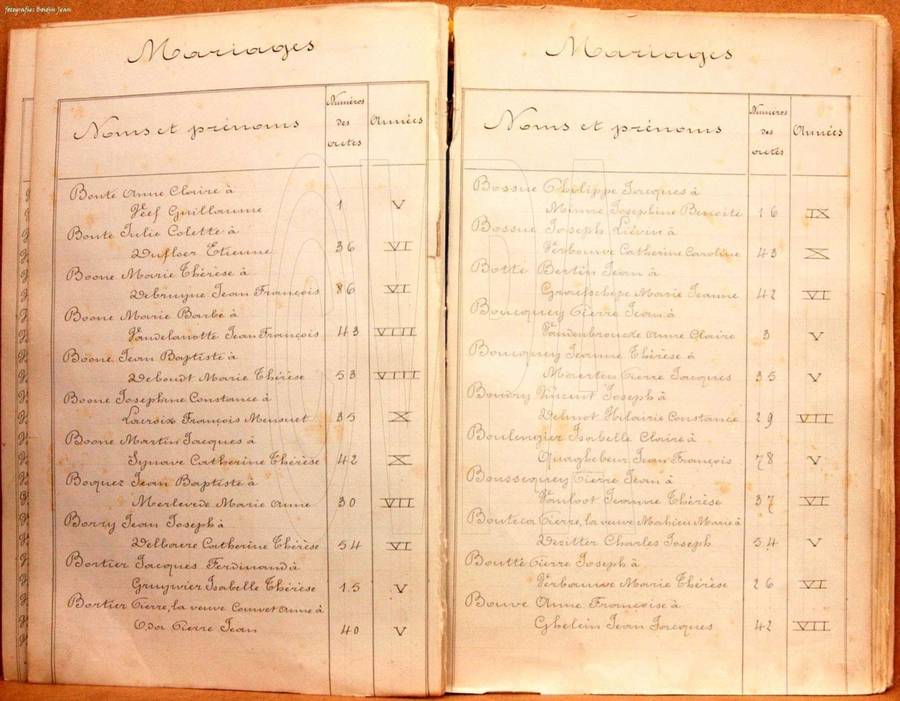 fotografie: Boidin Jean
Mariages
Noms et prénoms
Numéros des actes
Années
Bonte Anne Claire à
Veef Guillaume 1 V
Bonte Julie Colette à
Dufloer Etienne 36 VI
Boone Marie Thérèse à
Debruyne Jean François 86 VI
Boone Marie Barbe à
Vandelanotte Jean François 43 VIII
Boone Jean Baptiste à
Deboudt Marie Thérèse 53 VIII
Boone Josephine Constance à
Lacroix François 35 X
Boone Martin Jacques à
Synave Catherine Thérèse 42 X
Boquez Jean Baptiste à
Merlevede Marie Anne 30 VII
Borry Jean Joseph à
Delbaere Catherine Thérèse 54 VI
Bortier Jacques Ferdinand à
Gruywier Isabelle Thérèse 15 V
Bortier Pierre, la veuve Couvet Anne à
Pierre Jean 40 V
Mariages
Noms et prénoms
Numéros des actes
Années
Bossue Philippe Jacques à
Minne Josephine Benoite 16 IX
Bossue Joseph Liévin à
Verbauwe Catherine Caroline 43 X
Botte Bertin Jean à
Graefschepe Marie Jeanne 42 VI
Boucquey Pierre Jean à
Vandenbroucke Anne Claire 3 V
Boucquey Jeanne Thérèse à
Maerten Pierre Jacques 35 V
Boudry Vincent Joseph à
Delmot Hilairie Constance 29 VII
Boulengier Isabelle Claire à
Quaghebeur Jean François 78 V
Boussequey Pierre Jean à
Vanloot Jeanne Thérèse 37 VI
Bouteca Pierre, la veuve Mahieu Marie à
Dezitter Charles Joseph 54 V
Boutté Pierre Joseph à
Verbauwe Marie Thérèse 26 VI
Bouve Anne Françoise à
Ghelein Jean Jacques 42 VII